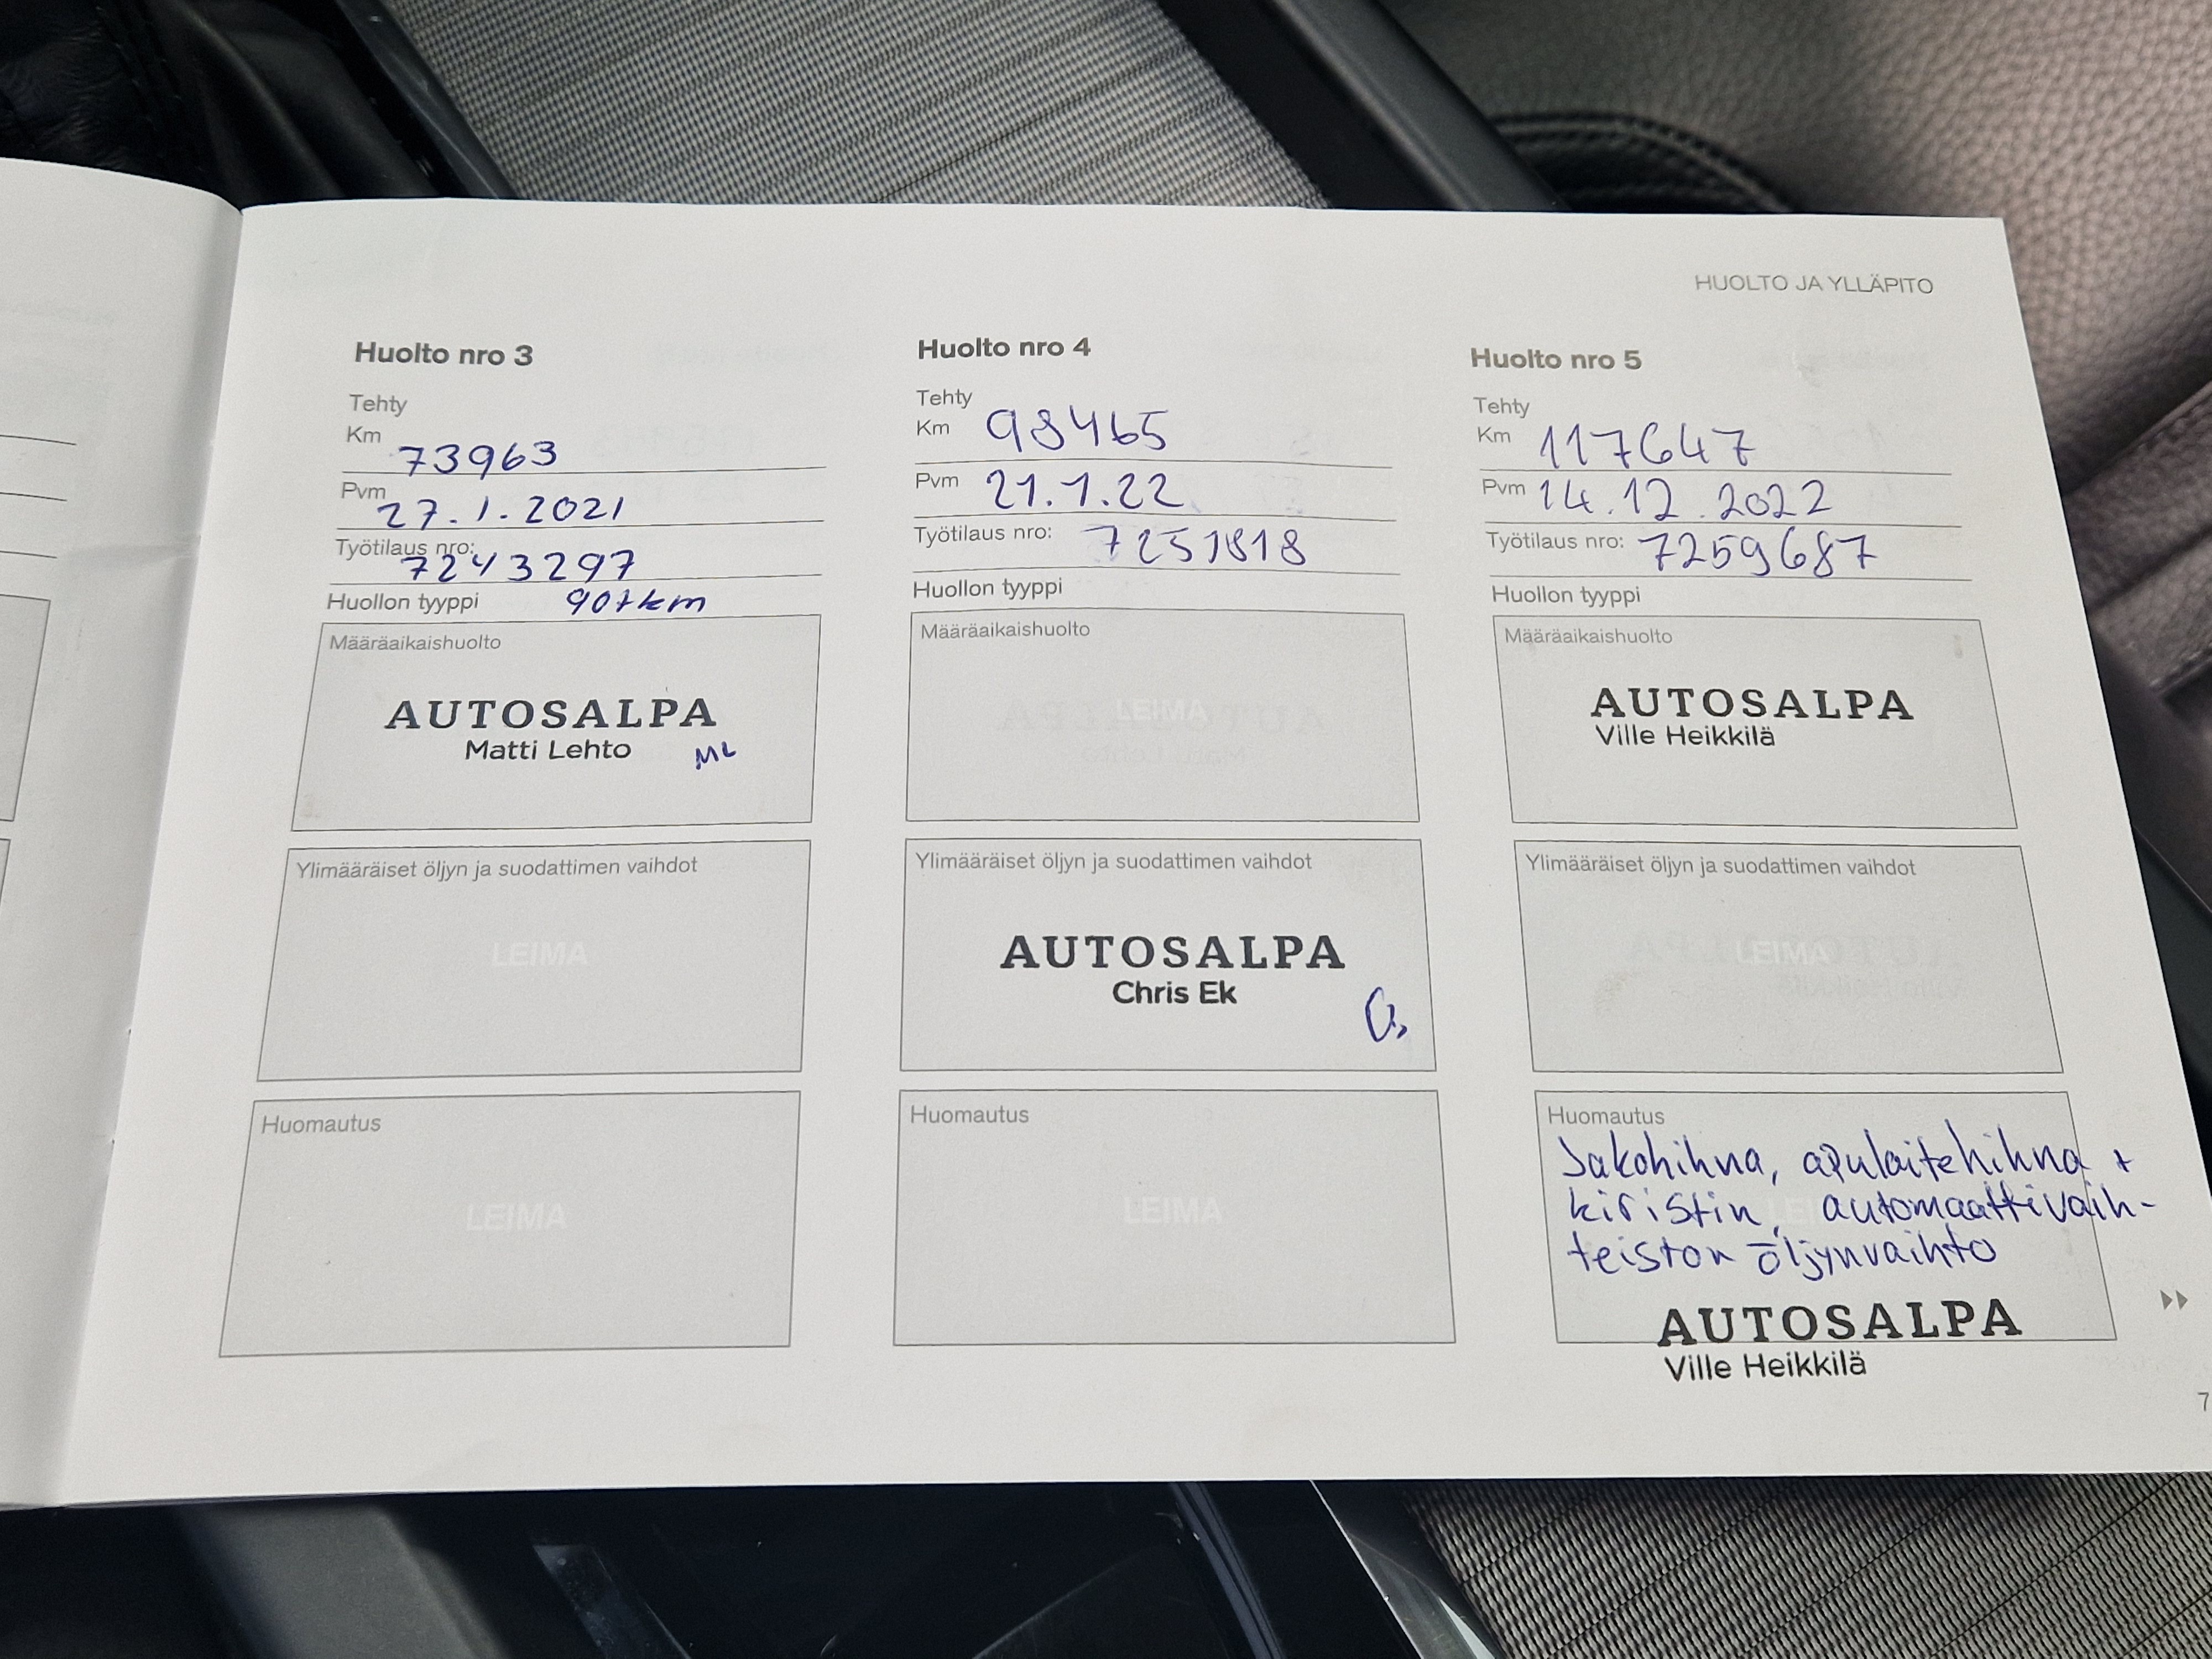 HUOLTO JA YLLÄPITO
Huolto nro 3
Tehty
Km 73963
Pvm 27.1.2021
Työtilaus nro: 7243297
Huollon tyyppi 90tkm
Määräaikaishuolto
AUTOSALPA
Matti Lehto ML
Ylimääräiset öljyn ja suodattimen vaihdot
LEIMA
Huomautus
LEIMA
Huolto nro 4
Tehty
Km 98465
Pvm 21.1.22
Työtilaus nro: 7251818
Huollon tyyppi
Määräaikaishuolto
LEIMA
Ylimääräiset öljyn ja suodattimen vaihdot
AUTOSALPA
Chris Ek
Huomautus
LEIMA
Huolto nro 5
Tehty
Km 117647
Pvm 14.12.2022
Työtilaus nro: 7259687
Huollon tyyppi
Määräaikaishuolto
AUTOSALPA
Ville Heikkilä
Ylimääräiset öljyn ja suodattimen vaihdot
LEIMA
Huomautus
Jakohihna, apulaitehihna +
kiristin, automaattivaih-
teiston öljynvaihto
AUTOSALPA
Ville Heikkilä
7